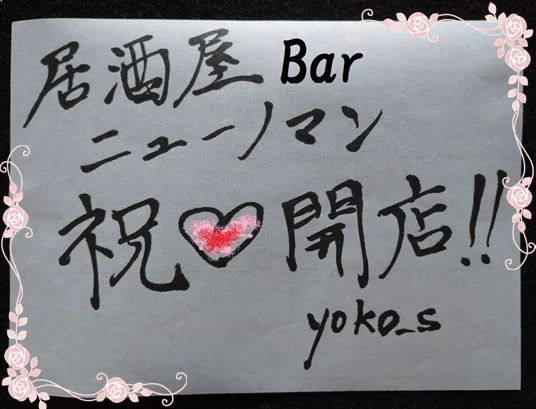 居酒屋 Bar
ニューノマン
祝♥開店!!
yoko_s